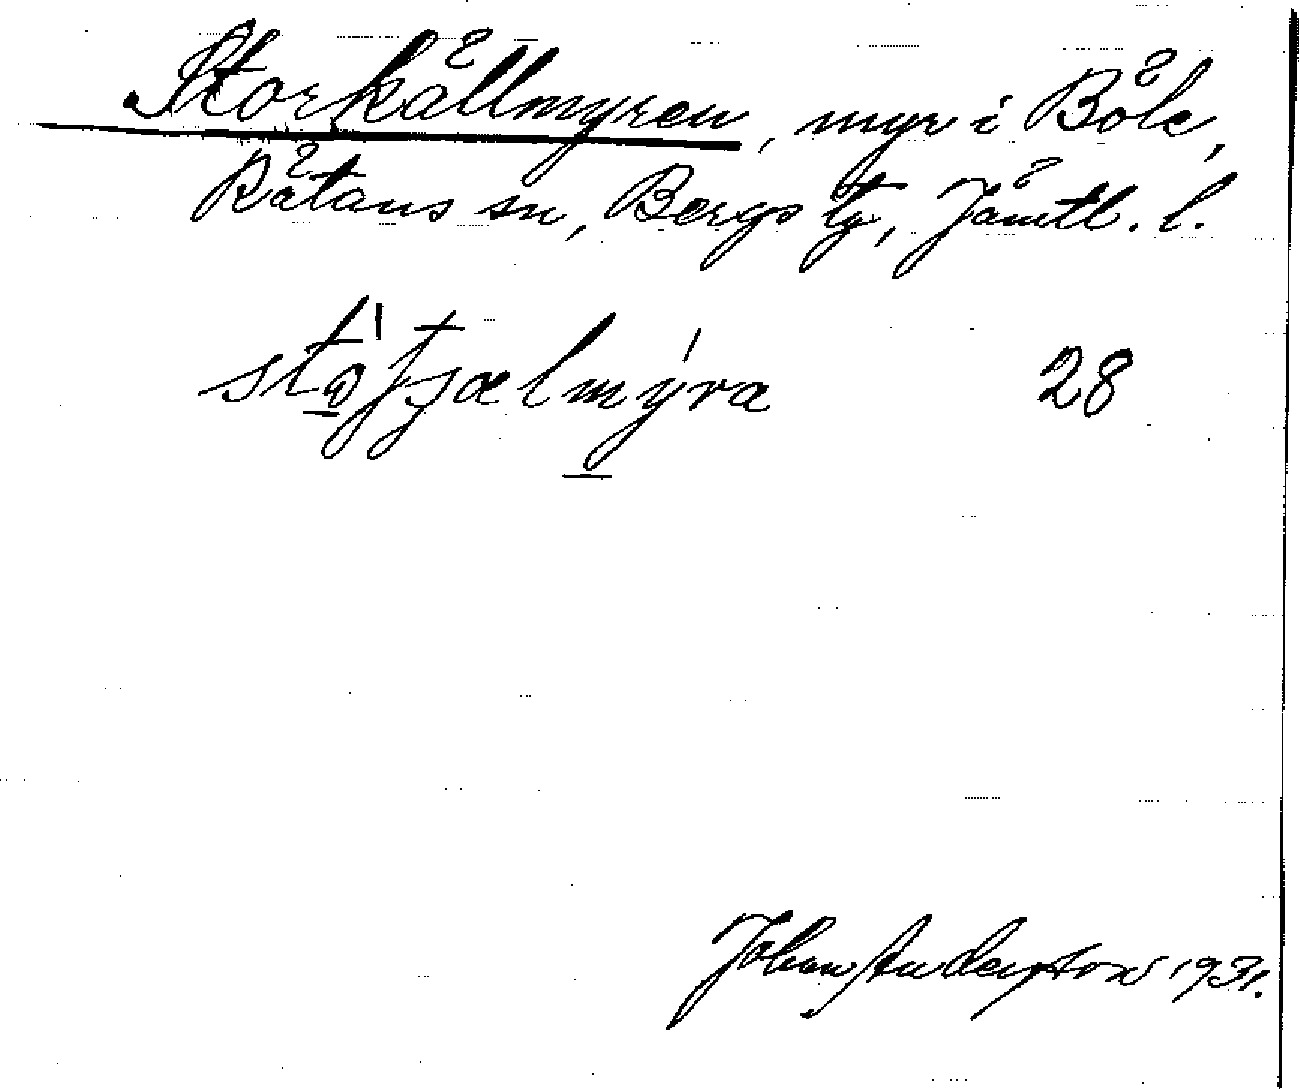 Storkällmyren, myr i Böle,
Rätans sn, Bergs tg, Jämtl. l.
28
Johan Anderson 1931.